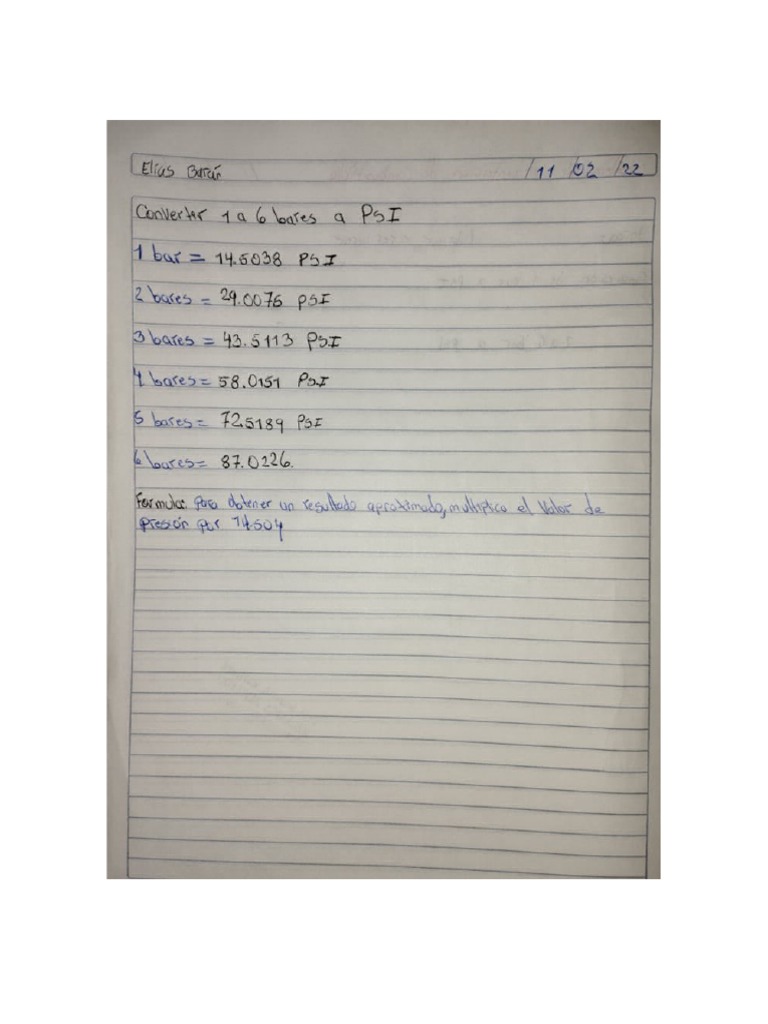 Elías Barán /11 /02 /22
Converter 1 a 6 bares a PSI
1 bar = 14.5038 PSI
2 bares = 29.0076 PSI
3 bares = 43.5113 PSI
4 bares = 58.0151 PSI
5 bares = 72.5189 PSI
6 bares = 87.0226.
Formula: para obtener un resultado aproximado, multiplica el valor de
presión por 14.504